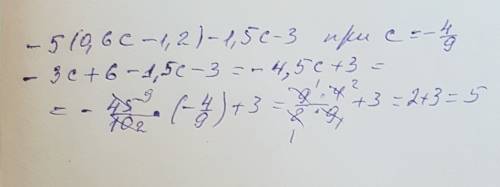 -5(0,6c-1,2)-1,5c-3 при c=-4/9
-3c+6-1,5c-3=-4,5c+3=
=-45 9/10 2·(-4/9)+3=9 1·4 2/2 1·9 1+3=2+3=5